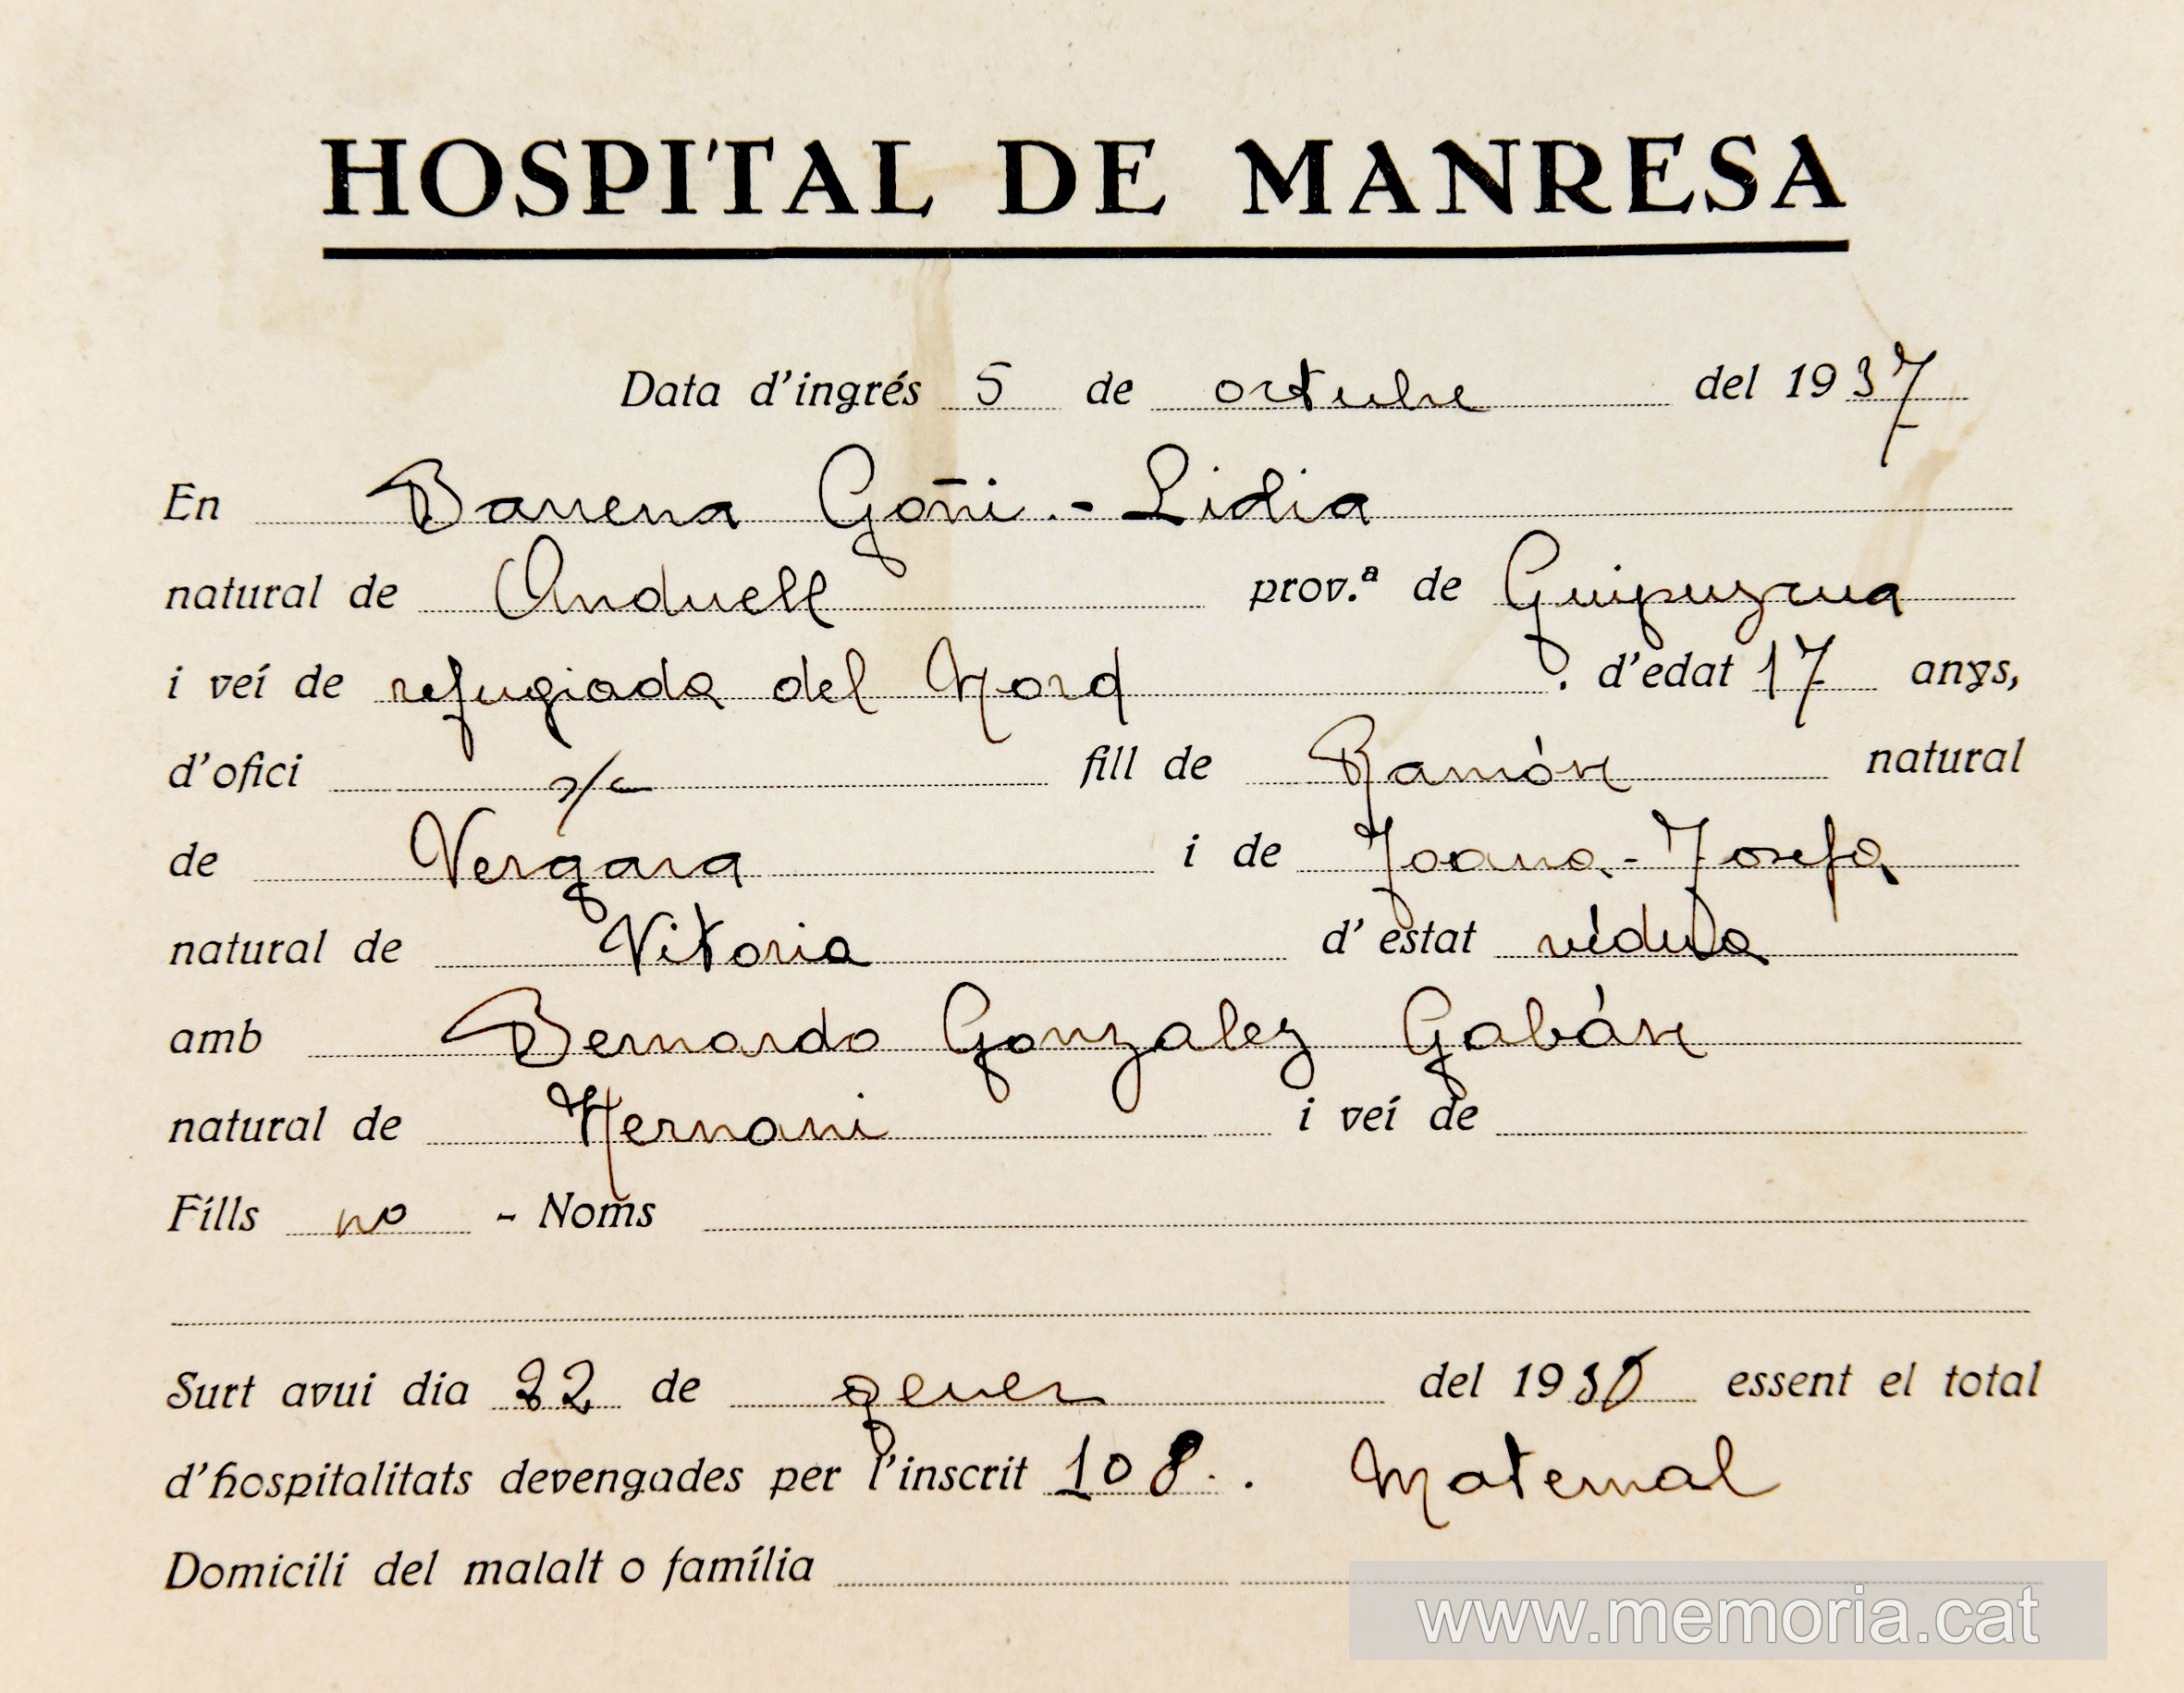 HOSPITAL DE MANRESA
Data d'ingrés 5 de octubre del 1937
En Barrena Goñi.- Lidia
natural de Anduell prov.ª de Guipuzcua
i veí de refugiada del Nord . d'edat 17 anys,
d'ofici s/c fill de Ramón natural
de Vergara i de Joana-Josefa
natural de Vitoria d'estat vídua
amb Bernardo Gonzalez Gabán
natural de Hernani i veí de
Fills no - Noms
Surt avui dia 22 de gener del 1938 essent el total
d'hospitalitats devengades per l'inscrit 108. . Maternal
Domicili del malalt o família
www.memoria.cat